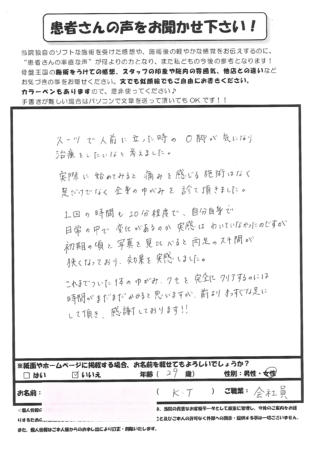 患者さんの声をお聞かせ下さい！
当院独自のソフトな施術を受けた感想や、施術後の軽やかな感覚をお伝えするのに、
"患者さんの率直な声"が何よりの力となり、また私どもの今後の参考となります！
骨盤王国の施術をうけての感想、スタッフの印象や院内の雰囲気、他店との違いなど
お気づきの事をお聞かせください。文でも似顔絵でもご自由にお書きください。
カラーペンもありますので、是非使ってください♪
手書きが難しい場合はパソコンで文章を送って頂いてもOKです！！
スーツで人前に立った時の O脚が気になり
治療をしたいなと考えました。
実際に始めてみると 痛みを感じる施術はなく
足だけでなく全身のゆがみを診て頂きました。
1回の時間も20分程度で、自分自身で
日常の中で変化があるのか実感はわいていなかったのですが
初期の頃と写真を見比べると両足のスキ間が
狭くなっており、効果を実感しました。
これまでついた体のゆがみ、クセを完全にクリアするのには
時間がまだまだかかると思いますが、前よりまっすぐな足に
して頂き、感謝しております!!
※紙面やホームページに掲載する場合、お名前を載せてもよろしいでしょうか？
□はい ☑いいえ 年齢（29 歳） 性別：男性・女性
お名前： （ K・T ） ご職業： 会社員
また、個人情報はご本人様からのお申し出により訂正・削除いたします。